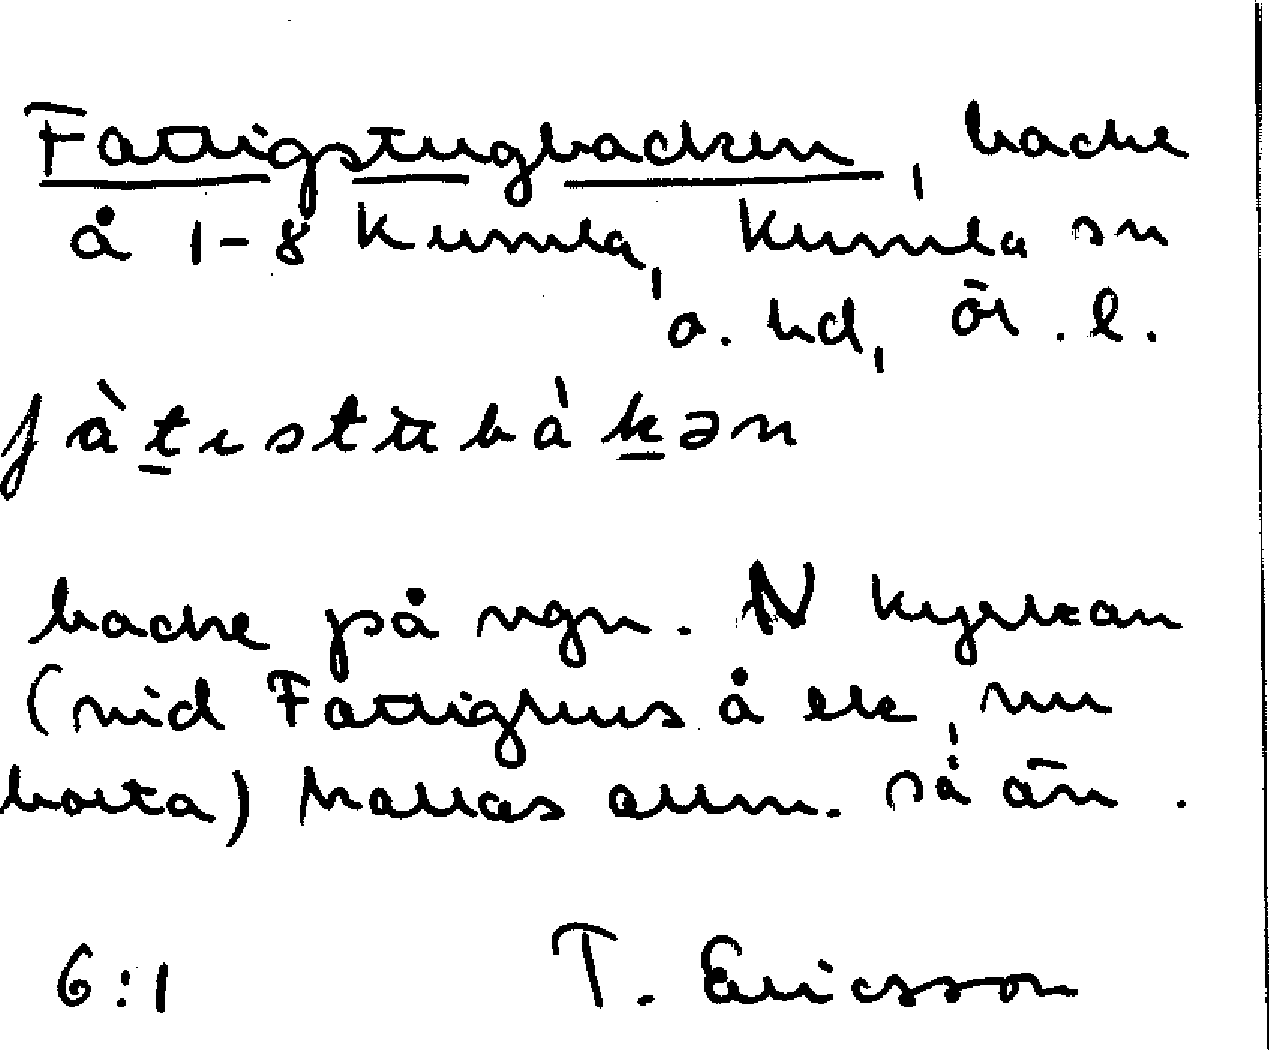 Fattigstugbacken, backe
å 1-8 Kumla, Kumla sn
o. hd, Ör. l.
fàtɩstŭbàkən
backe på vgn. N kyrkan
(vid Fattighus å ek, nu
borta) kallas allm. så än.
6:1 T. Ericsson